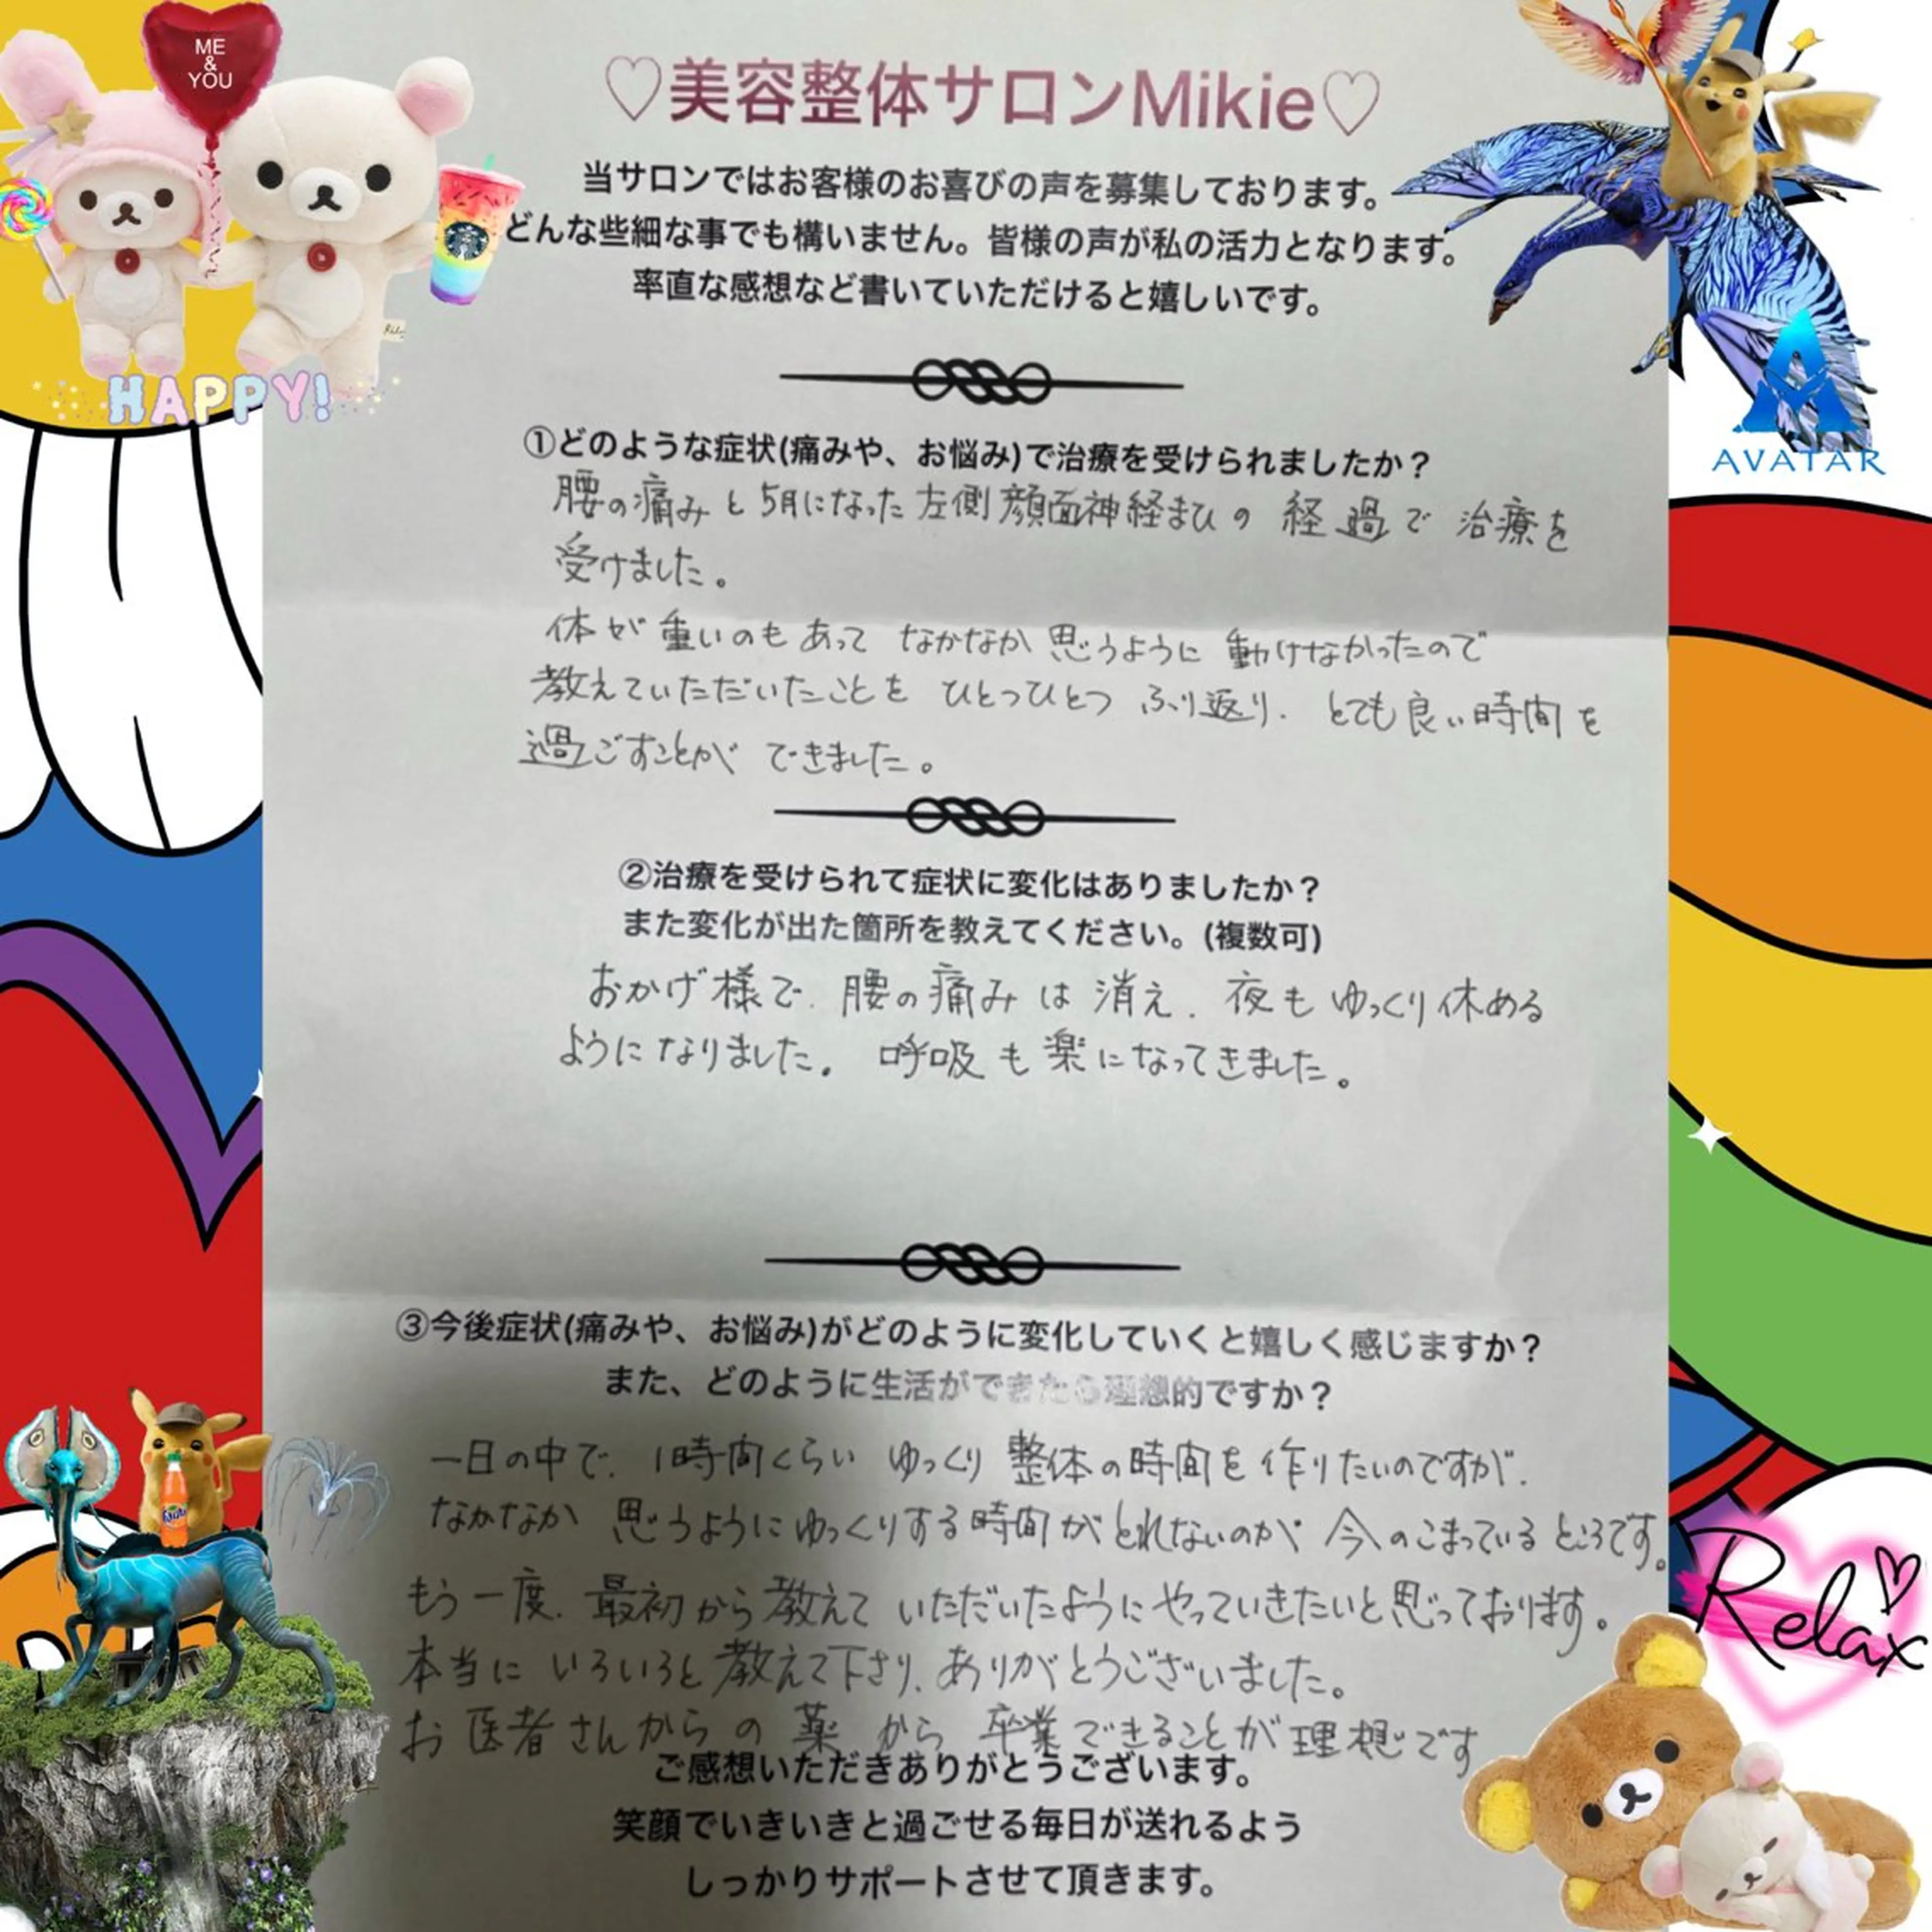 ME
&
YOU
HAPPY!
AVATAR
♡美容整体サロンMikie♡
当サロンではお客様のお喜びの声を募集しております。
どんな些細な事でも構いません。皆様の声が私の活力となります。
率直な感想など書いていただけると嬉しいです。
①どのような症状(痛みや、お悩み)で治療を受けられましたか？
腰の痛みと5月になった左側顔面神経まひの経過で治療を
受けました。
体が重いのもあってなかなか思うように動けなかったので
教えていただいたことをひとつひとつふり返り、とても良い時間を
過ごすことができました。
②治療を受けられて症状に変化はありましたか？
また変化が出た箇所を教えてください。(複数可)
おかげ様で、腰の痛みは消え、夜もゆっくり休める
ようになりました。呼吸も楽になってきました。
③今後症状(痛みや、お悩み)がどのように変化していくと嬉しく感じますか？
また、どのように生活ができたら理想的ですか？
一日の中で、1時間くらいゆっくり整体の時間を作りたいのですが、
なかなか思うようにゆっくりする時間がとれないのが今のこまっているところです。
もう一度、最初から教えていただいたようにやっていきたいと思っております。
本当にいろいろと教えて下さり、ありがとうございました。
お医者さんからの薬から卒業できることが理想です
ご感想いただきありがとうございます。
笑顔でいきいきと過ごせる毎日が送れるよう
しっかりサポートさせて頂きます。
Fanta
Relax